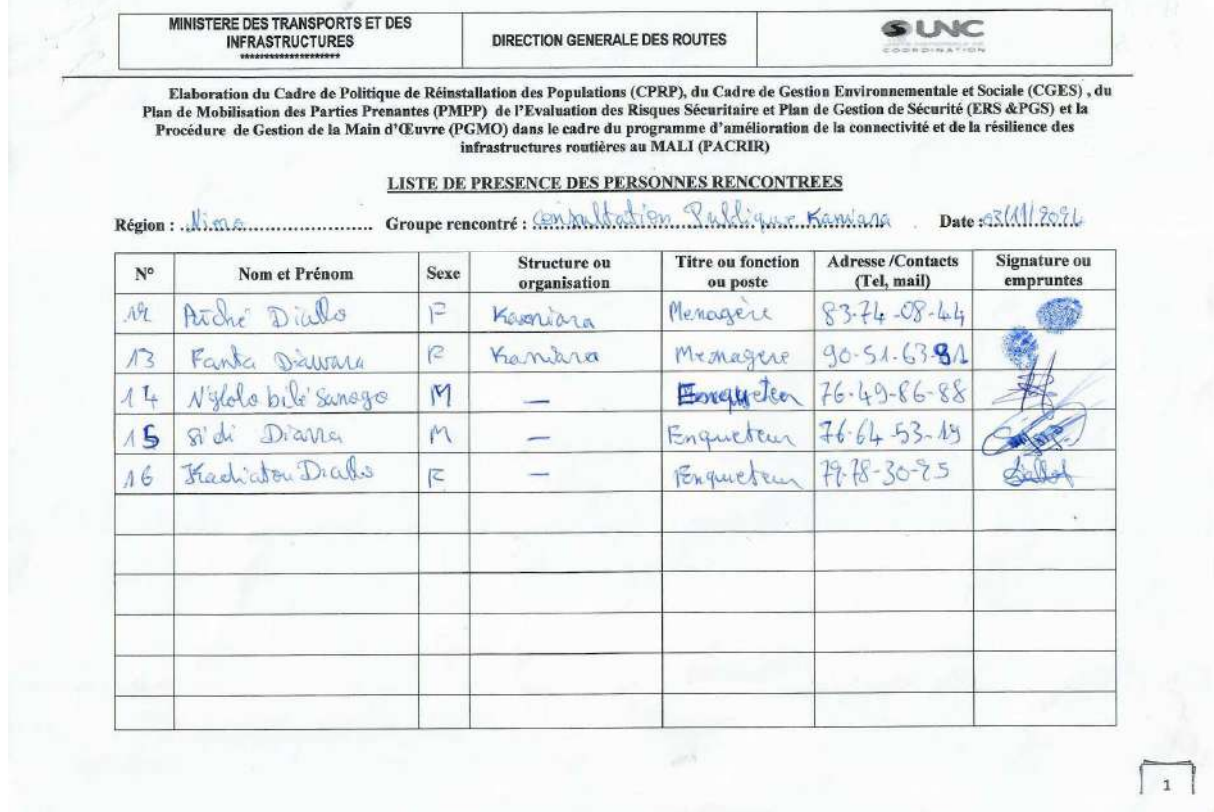 MINISTERE DES TRANSPORTS ET DES
INFRASTRUCTURES
********************
DIRECTION GENERALE DES ROUTES
UNC
COORDINATION
Elaboration du Cadre de Politique de Réinstallation des Populations (CPRP), du Cadre de Gestion Environnementale et Sociale (CGES) , du
Plan de Mobilisation des Parties Prenantes (PMPP) de l'Evaluation des Risques Sécuritaire et Plan de Gestion de Sécurité (ERS &PGS) et la
Procédure de Gestion de la Main d'Œuvre (PGMO) dans le cadre du programme d'amélioration de la connectivité et de la résilience des
infrastructures routières au MALI (PACRIR)
LISTE DE PRESENCE DES PERSONNES RENCONTREES
Région : Groupe rencontré : Consultation Publique Kaniara Date : 03/11/2024
N° Nom et Prénom Sexe Structure ou organisation Titre ou fonction ou poste Adresse /Contacts (Tel, mail) Signature ou empruntes
12 Diallo F Kaniara Menagère 83-74-08-44
13 Fanta Diawara F Kaniara Menagere 90-51-63-91
14 N'golo bilé Sanogo M — Enqueteur 76-49-86-88
15 Sidi Diarra M — Enqueteur 76-64-53-19
16 Kadiatou Diallo F — Enqueteur 79-78-30-25
1